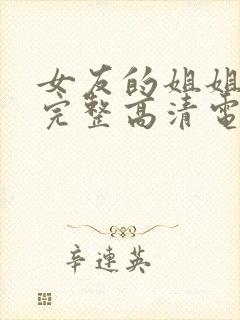 女友的姐姐
完整高清電
辛連英